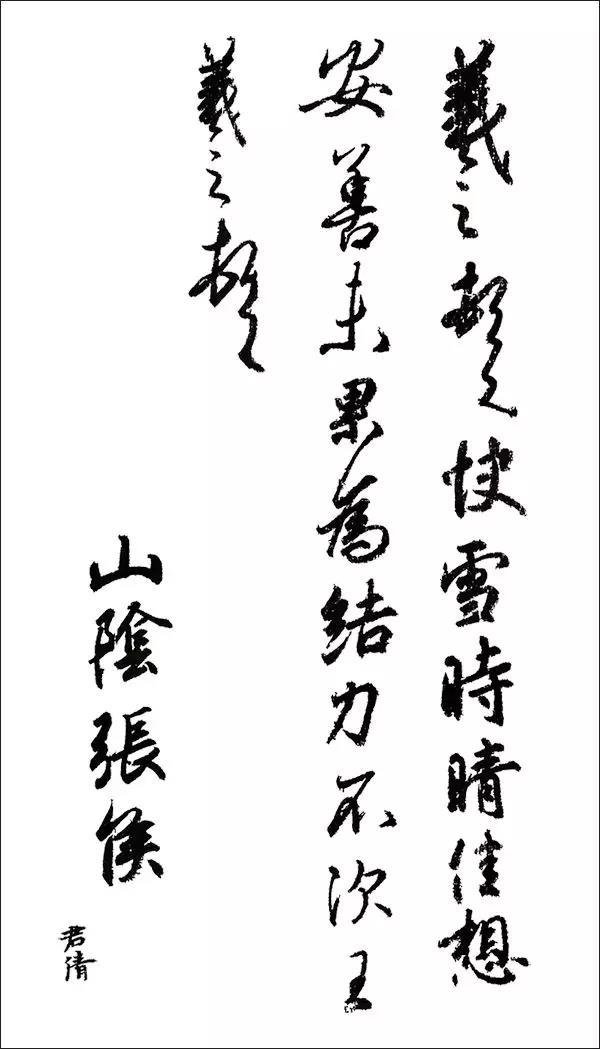 羲之頓首快雪時晴佳想
安善未果為結力不次王
羲之頓首
山陰張侯
君清